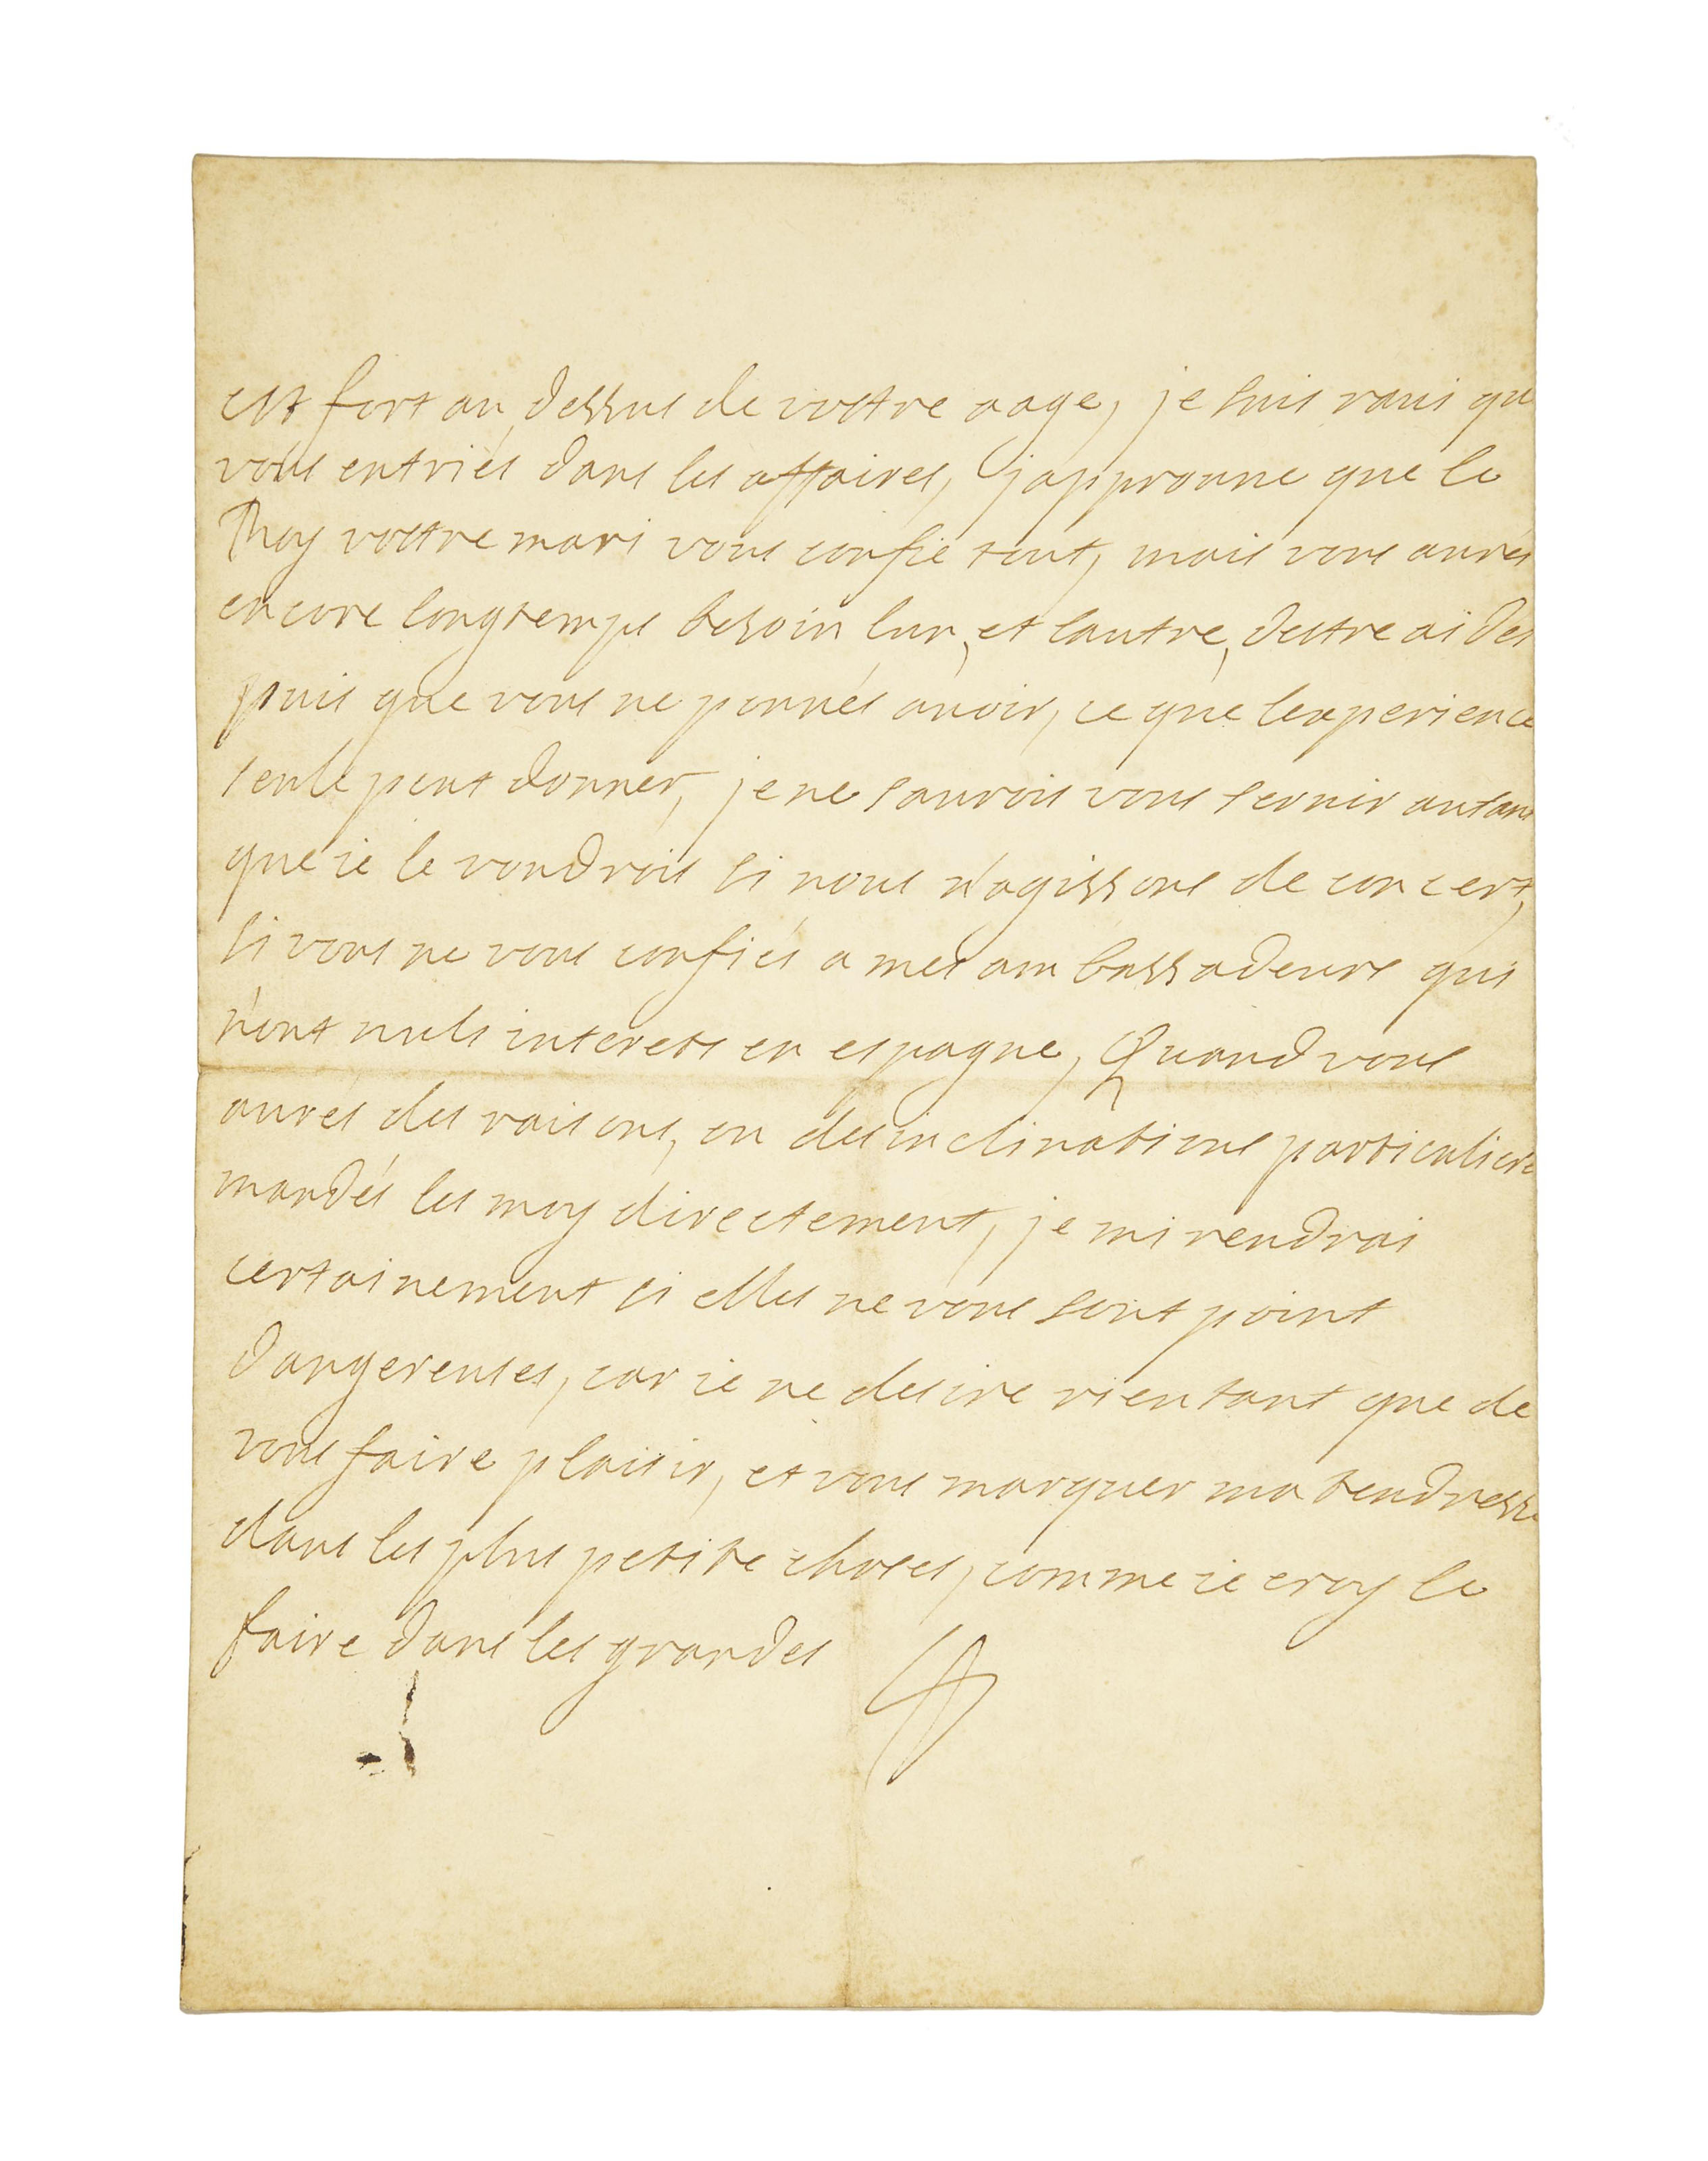 est fort au dessus de vostre aage, je suis raui que
vous entriés dans les affaires, japprouue que le
Roy vostre mari vous confie tout, mais vous aurés
encore longtemps besoin lun, et lautre, destre aidés
puis que vous ne pouués auoir, ce que lexperience
seule peut donner, je ne saurois vous seruir autant
que ie le voudrois si nous n'agissons de concert,
si vous ne vous confiés a mes ambassadeurs qui
n'ont nuls interets en espagne, Quand vous
aurés des raisons, ou des inclinations particulieres
mandés les moy directement, je mi rendrai
certainement si elles ne vous sont point
dangereuses, car ie ne desire rien tant que de
vous faire plaisir, et vous marquer ma tendresse
dans les plus petite choses, comme ie croy le
faire dans les grandes